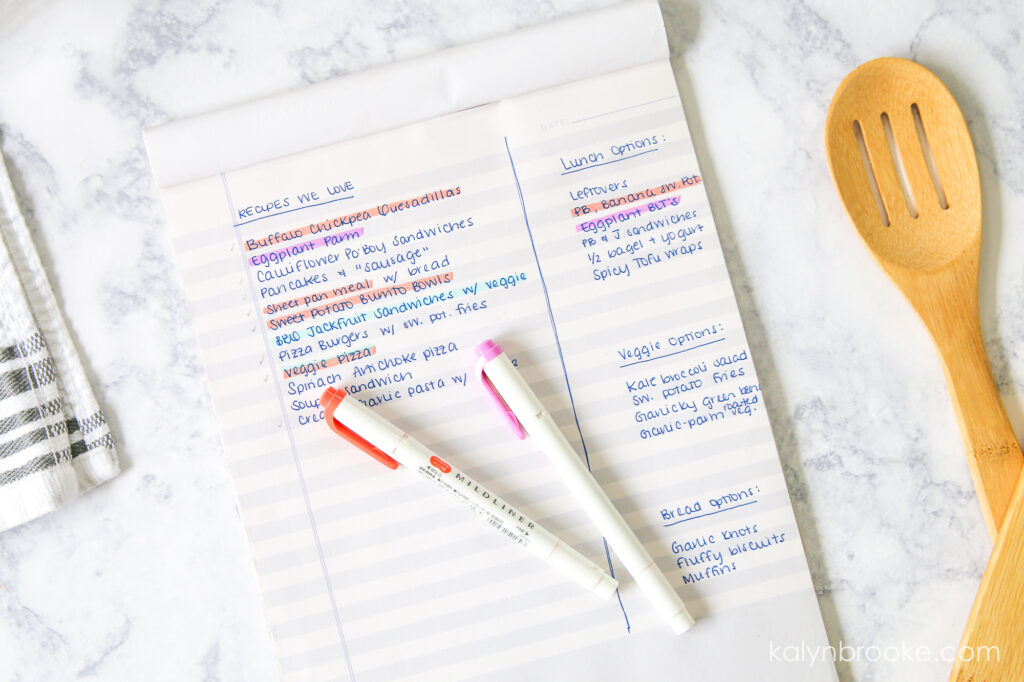 DATE:
RECIPES WE LOVE
Buffalo Chickpea Quesadillas
Eggplant Parm
Cauliflower Po'Boy Sandwiches
Pancakes & "sausage"
Sheet pan meal w/ bread
Sweet Potato Burrito Bowls
BBQ Jackfruit Sandwiches w/ veggie
Pizza Burgers w/ sw. pot. fries
Veggie Pizza
Spinach Artichoke pizza
sandwich
Garlic pasta w/
Lunch Options:
Leftovers
PB, Banana sw. Pot.
Eggplant BLT's
PB & J sandwiches
1/2 bagel + yogurt
Spicy Tofu wraps
Veggie Options:
Kale broccoli salad
sw. potato fries
Garlicky green
Garlic-parm roasted veg.
Bread Options:
Garlic knots
Fluffy biscuits
Muffins
MILDLINER
kalynbrooke.com